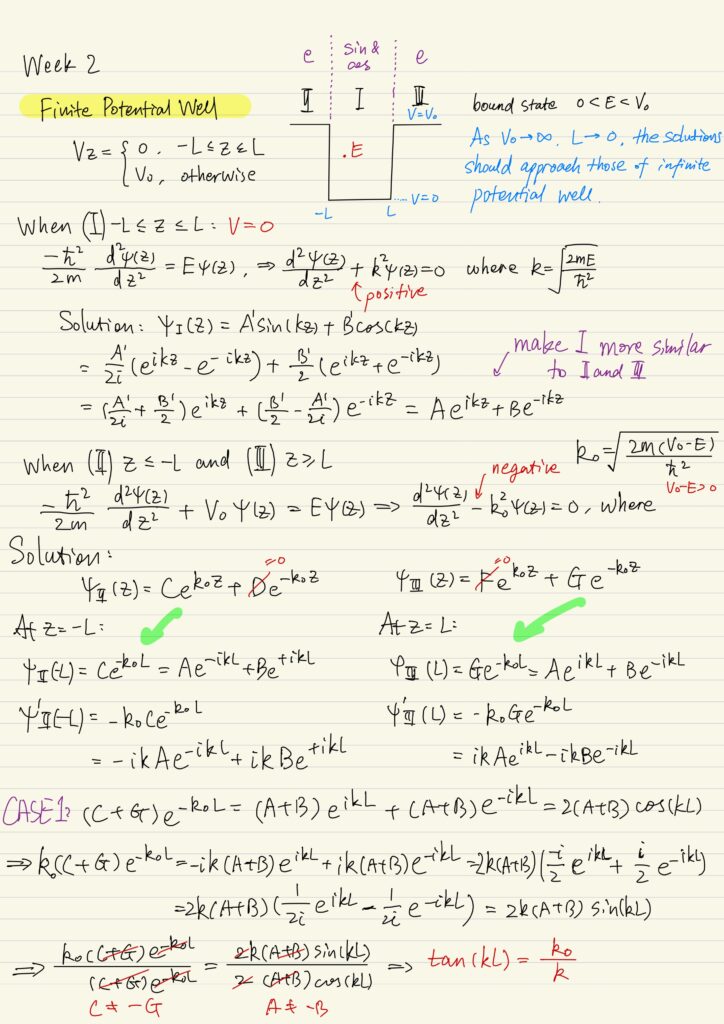 Week 2
e sin & cos e
II I III
V=V₀
Finite Potential Well
bound state 0 < E < V₀
V z = { 0, -L ≤ z ≤ L
V₀, otherwise
. E
-L L V=0
As V₀ → ∞, L → 0, the solutions
should approach those of infinite
potential well.
When (I) -L ≤ z ≤ L: V = 0
-ħ²/2m d²ψ(z)/dz² = Eψ(z), ⇒ d²ψ(z)/dz² + k²ψ(z) = 0 where k = √(2mE/ħ²)
↑ positive
Solution: ψ_I(z) = A'sin(kz) + B'cos(kz)
= A'/2i (e^{ikz} - e^{-ikz}) + B'/2 (e^{ikz} + e^{-ikz})
make I more similar
to II and III
= (A'/2i + B'/2) e^{ikz} + (B'/2 - A'/2i) e^{-ikz} = Ae^{ikz} + Be^{-ikz}
When (II) z ≤ -L and (III) z ≥ L
k₀ = √(2m(V₀-E)/ħ²)
V₀-E > 0
negative
-ħ²/2m d²ψ(z)/dz² + V₀ψ(z) = Eψ(z) ⇒ d²ψ(z)/dz² - k₀²ψ(z) = 0, where
Solution:
ψ_II(z) = Ce^{k₀z} + De^{-k₀z} =0
ψ_III(z) = Fe^{k₀z} + Ge^{-k₀z} =0
At z = -L:
At z = L:
ψ_II(-L) = Ce^{-k₀L} = Ae^{-ikL} + Be^{+ikL}
ψ_III(L) = Ge^{-k₀L} = Ae^{ikL} + Be^{-ikL}
ψ'_II(-L) = -k₀Ce^{-k₀L}
ψ'_III(L) = -k₀Ge^{-k₀L}
= -ikAe^{-ikL} + ikBe^{+ikL}
= ikAe^{ikL} - ikBe^{-ikL}
CASE 1: (C+G)e^{-k₀L} = (A+B)e^{ikL} + (A+B)e^{-ikL} = 2(A+B)cos(kL)
⇒ k₀(C+G)e^{-k₀L} = -ik(A+B)e^{ikL} + ik(A+B)e^{-ikL} = 2k(A+B)(-i/2 e^{ikL} + i/2 e^{-ikL})
= 2k(A+B)(1/2i e^{ikL} - 1/2i e^{-ikL}) = 2k(A+B) sin(kL)
⇒ k₀(C+G)e^{-k₀L}/(C+G)e^{-k₀L} = 2k(A+B)sin(kL)/2(A+B)cos(kL) ⇒ tan(kL) = k₀/k
C ≠ -G A ≠ -B